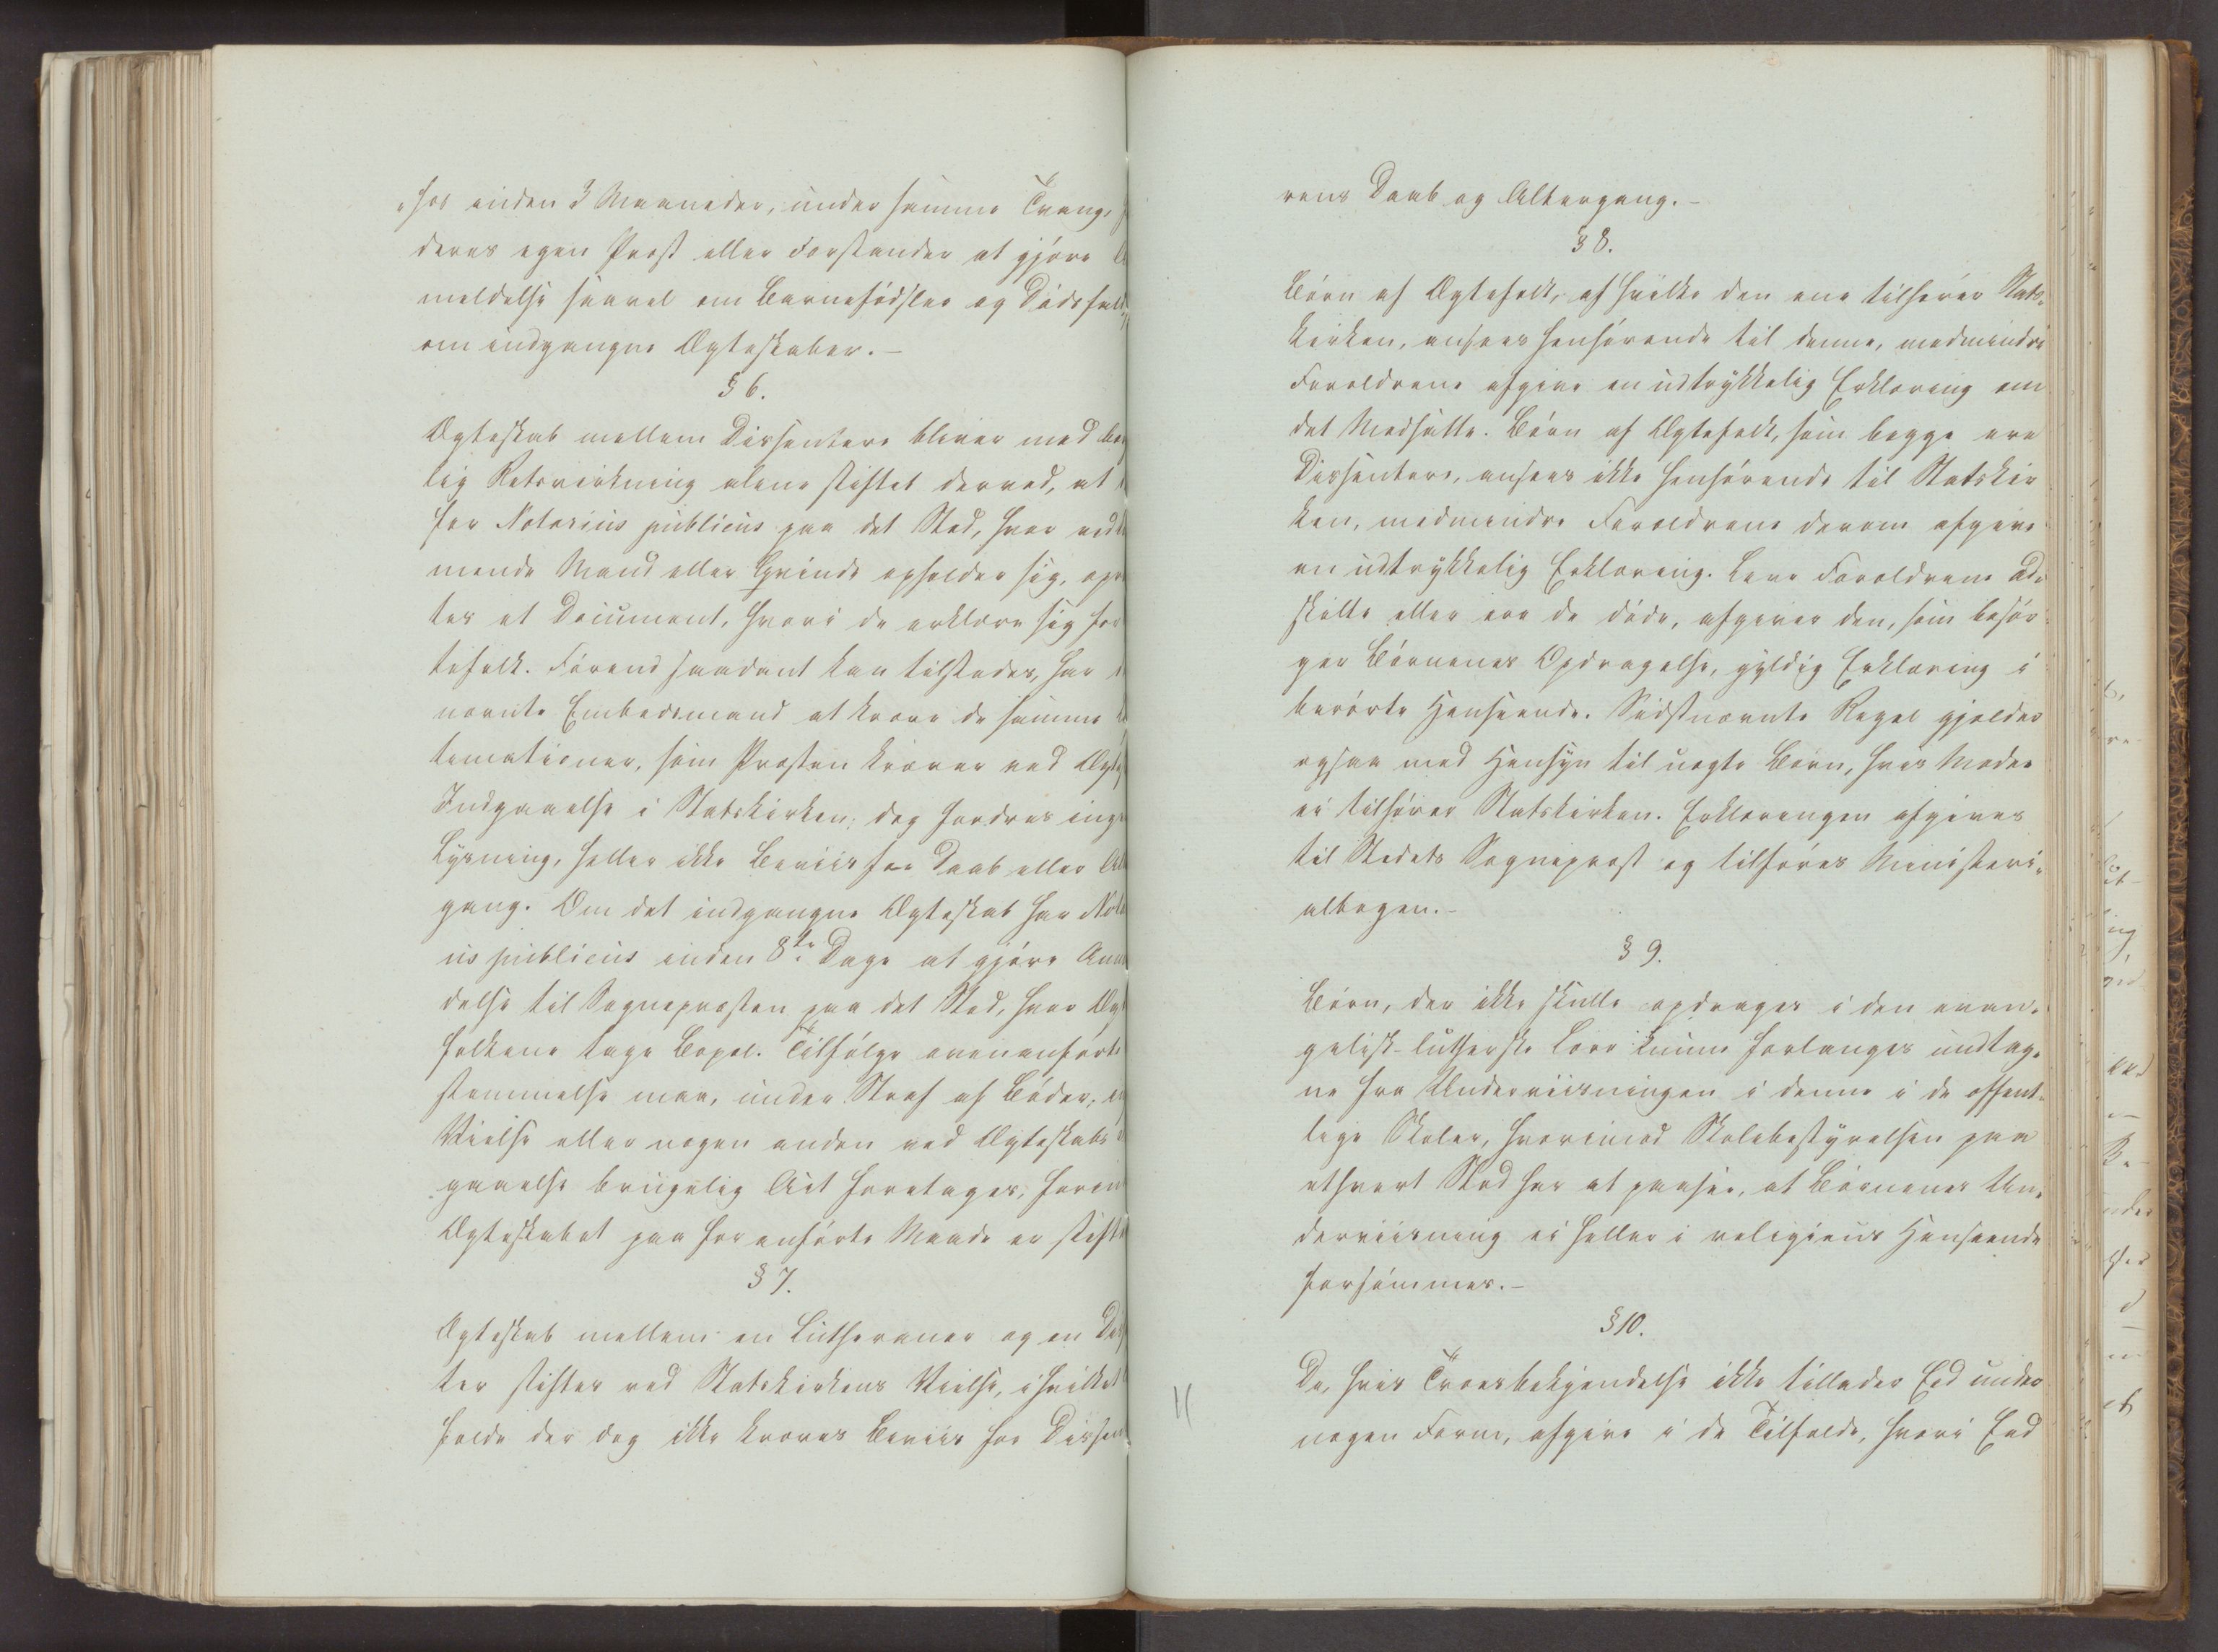 hos inden 3 Maaneder, under samme Tvang,
deres egen Præst eller Forstander at gjøre
meldelse saavel om Barnefødsler og Dødsfald,
om indgangne Ægteskaber.-
§ 6.
Ægteskab mellem Dissentere bliver med
lig Retsvirkning alene stiftet derved, at
for Notarius publicus paa det Sted, hvor
mende Mand eller Qvinde opholder sig, opr
tes et Document, hvori de erklære sig for
tefolk. Førend saadant kan tilstedes, har
nævnte Embedsmand at kræve de samme
timationer, som Præsten kræver ved Ægtes
Indgaaelse i Statskirken; dog fordres inge
Lysning, heller ikke Beviis for Daab eller Al
gang. Om det indgangne Ægteskab har Nota
us publicus inden 8te Dage at gjøre Anm
delse til Sognepræsten paa det Sted, hvor Ægt
folkene tage Bopæl. Tilfølge ovenanførte
stemmelse maa, under Straf af Bøder, ei
Vielse eller nogen anden ved Ægteskabs
gaaelse brugelig Act foretages, foren
Ægteskabet paa foranførte Maade er stift
§ 7.
Ægteskab mellem en Lutheraner og en Dis
ter stiftes ved Statskirkens Vielse, i hvilket
fælde der dog ikke kræves Beviis for Dissen
rens Daab og Altergang.-
§ 8.
Børn af Ægtefolk, af hvilke den ene tilhører Stats-
kirken, ansees henhørende til denne, medmindre
Forældrene afgive en udtrykkelig Erklæring om
det Modsatte. Børn af Ægtefolk, som begge ere
Dissentere, ansees ikke henhørende til Statskir
ken, medmindre Forældrene derom afgive
en udtrykkelig Erklæring. Leve Forældrene ad-
skilte eller ere de døde, afgiver den, som besør-
ger Børnenes Opdragelse, gyldig Erklæring i
berørte Henseende. Sidstnævnte Regel gjælder
ogsaa med Hensyn til uægte Børn, hvis Moder
ei tilhører Statskirken. Erklæringen afgives
til Stedets Sognepræst og tilføres Ministeri-
albogen.-
§ 9.
Børn, der ikke skulle opdrages i den evan-
gelisk-lutherske Lære kunne forlanges undtag-
ne fra Underviisningen i denne i de offent-
lige Skoler, hvorimod Skolebestyrelsen paa
ethvert Sted har at paasee, at Børnenes Un-
derviisning ei heller i religieus Henseende
forsømmes.-
§ 10.
De, hvis Troesbekjendelse ikke tillader Eed under
nogen Form, afgive i de Tilfælde, hvori Eed